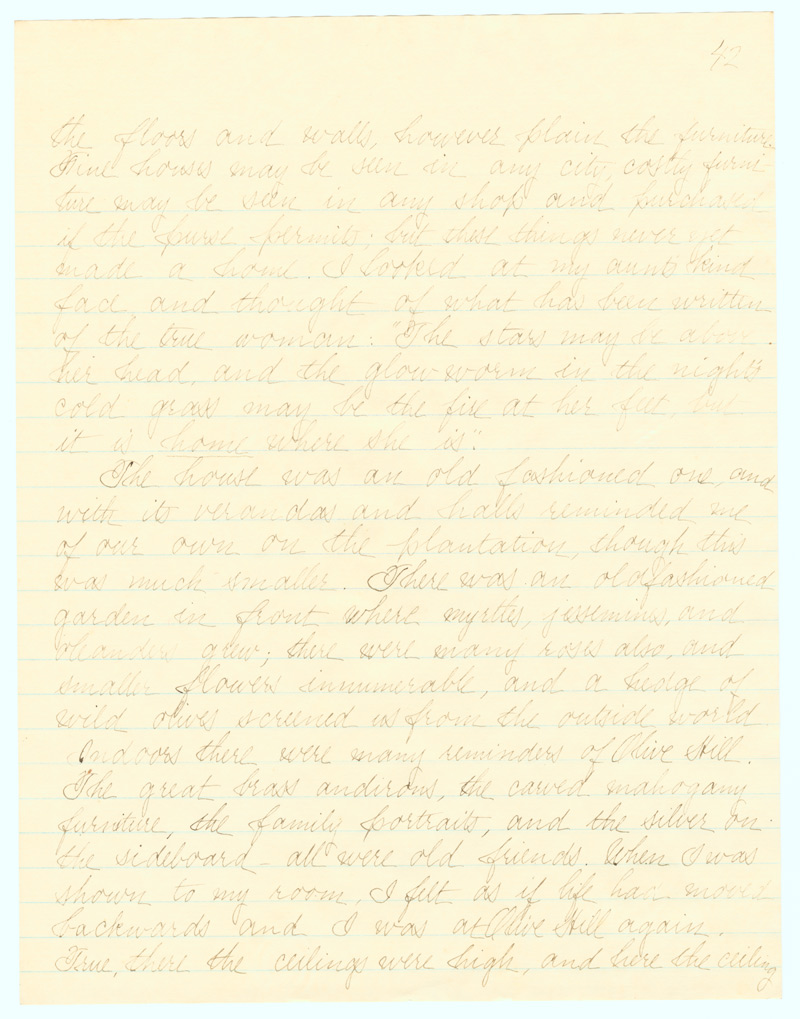 42
the floors and walls, however plain the furniture.
Fine houses may be seen in any city, costly furni-
ture may be seen in any shop and purchased
if the purse permits; but these things never yet
made a home. I looked at my aunt's kind
face, and thought of what has been written
of the true woman: "The stars may be above
her head, and the glow worm in the night's
cold grass may be the fire at her feet, but
it is home where she is".
The house was an old fashioned one, and
with its verandas and halls reminded me
of our own on the plantation, though this
was much smaller. There was an old fashioned
garden in front where myrtles, jessemins, and
oleanders grew; there were many roses also, and
smaller flowers innumerable, and a hedge of
wild olives screened us from the outside world.
Indoors there were many reminders of Olive Hill.
The great brass andirons, the carved mahogany
furniture, the family portraits, and the silver on
the sideboard - all were old friends. When I was
shown to my room, I felt as if life had moved
backwards and I was at Olive Hill again.
True, there the ceilings were high, and here the ceiling